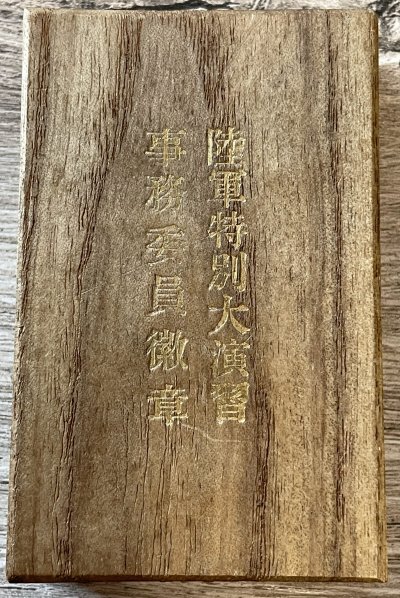 陸軍特別大演習
事務委員徽章